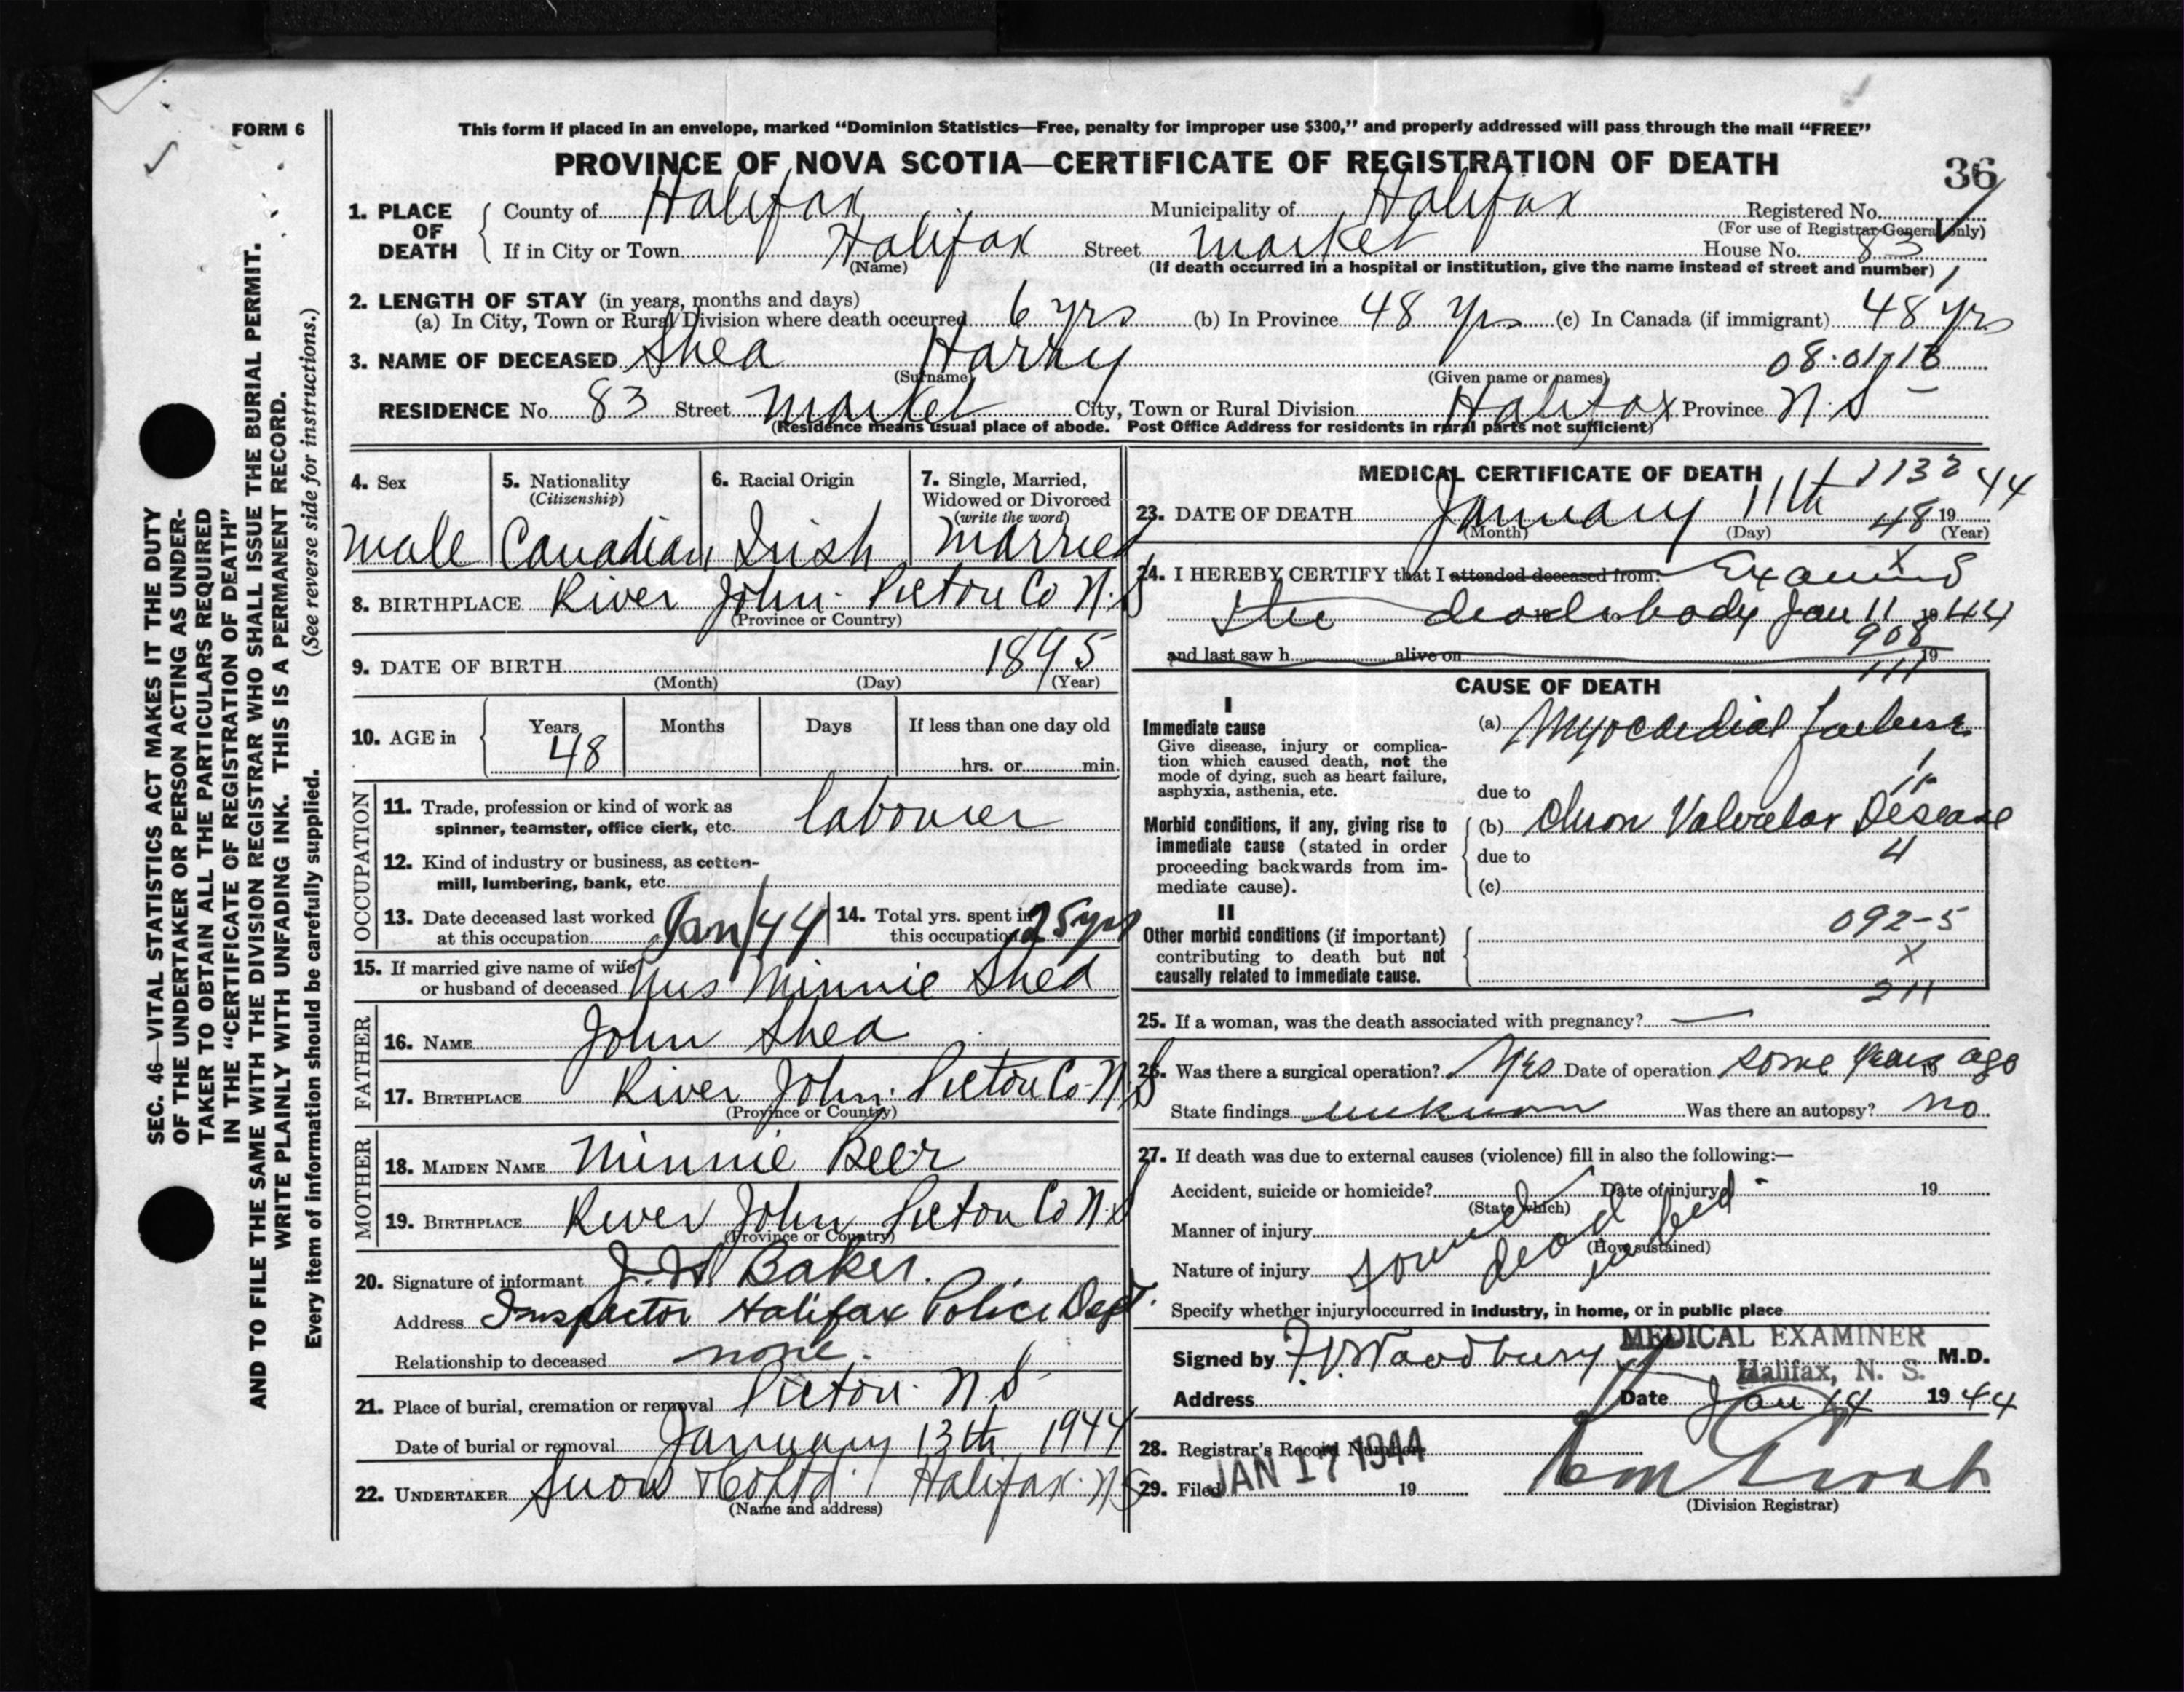 FORM 6
This form if placed in an envelope, marked "Dominion Statistics—Free, penalty for improper use $300," and properly addressed will pass through the mail "FREE"
PROVINCE OF NOVA SCOTIA—CERTIFICATE OF REGISTRATION OF DEATH
36
1. PLACE OF DEATH County of Halifax Municipality of Halifax Registered No.
(For use of Registrar General only)
If in City or Town Halifax Street Market House No. 83
(Name) (If death occurred in a hospital or institution, give the name instead of street and number)
2. LENGTH OF STAY (in years, months and days)
(a) In City, Town or Rural Division where death occurred 6 yrs (b) In Province 48 Yrs (c) In Canada (if immigrant) 48 yrs
3. NAME OF DECEASED Shea Harry 08.01
(Surname) (Given name or names)
RESIDENCE No. 83 Street Market City, Town or Rural Division Halifax Province N.S
(Residence means usual place of abode. Post Office Address for residents in rural parts not sufficient)
4. Sex
male
5. Nationality
(Citizenship)
Canadian
6. Racial Origin
Irish
7. Single, Married,
Widowed or Divorced
(write the word)
Married
8. BIRTHPLACE River John. Pictou Co N.S
(Province or Country)
9. DATE OF BIRTH 1895
(Month) (Day) (Year)
10. AGE in Years Months Days If less than one day old
48 hrs. or min.
OCCUPATION
11. Trade, profession or kind of work as
spinner, teamster, office clerk, etc. labourer
12. Kind of industry or business, as cotton-
mill, lumbering, bank, etc.
13. Date deceased last worked
at this occupation Jan/44
14. Total yrs. spent in
this occupation 25 yrs
15. If married give name of wife
or husband of deceased Mrs Minnie Shea
FATHER
16. NAME John Shea
17. BIRTHPLACE River John. Pictou Co. N.S
(Province or Country)
MOTHER
18. MAIDEN NAME Minnie Beer
19. BIRTHPLACE River John Pictou Co N.S
(Province or Country)
20. Signature of informant J. W. Baker.
Address Inspector Halifax Police Dept.
Relationship to deceased none.
21. Place of burial, cremation or removal Pictou. N.S
Date of burial or removal January 13th 1944
22. UNDERTAKER Snow & Co Ltd. Halifax. N.S
(Name and address)
MEDICAL CERTIFICATE OF DEATH
23. DATE OF DEATH January 11th 1944
48
(Month) (Day) (Year)
24. I HEREBY CERTIFY that I attended deceased from: Examined
X
the dead body Jan 11 1944
908
and last saw h alive on 19
111
CAUSE OF DEATH
I
Immediate cause
Give disease, injury or complica-
tion which caused death, not the
mode of dying, such as heart failure,
asphyxia, asthenia, etc.
(a) Myocardial failure
due to
Morbid conditions, if any, giving rise to
immediate cause (stated in order
proceeding backwards from im-
mediate cause).
(b) Chron Valvular Disease
due to 4
(c)
II
Other morbid conditions (if important)
contributing to death but not
causally related to immediate cause.
092-5
X
211
25. If a woman, was the death associated with pregnancy? —
26. Was there a surgical operation? Yes Date of operation some years ago 19
State findings unknown Was there an autopsy? no
27. If death was due to external causes (violence) fill in also the following:—
Accident, suicide or homicide? Date of injury 19
(State which)
Manner of injury
(How sustained)
found dead in bed
Nature of injury
Specify whether injury occurred in industry, in home, or in public place
MEDICAL EXAMINER
Halifax, N. S.
Signed by F.V. Woodbury M.D.
Address Date Jan 14 1944
28. Registrar's Record Number
29. Filed JAN 17 1944 19
(Division Registrar)
SEC. 46—VITAL STATISTICS ACT MAKES IT THE DUTY
OF THE UNDERTAKER OR PERSON ACTING AS UNDER-
TAKER TO OBTAIN ALL THE PARTICULARS REQUIRED
IN THE "CERTIFICATE OF REGISTRATION OF DEATH"
AND TO FILE THE SAME WITH THE DIVISION REGISTRAR WHO SHALL ISSUE THE BURIAL PERMIT.
WRITE PLAINLY WITH UNFADING INK. THIS IS A PERMANENT RECORD.
Every item of information should be carefully supplied. (See reverse side for instructions.)